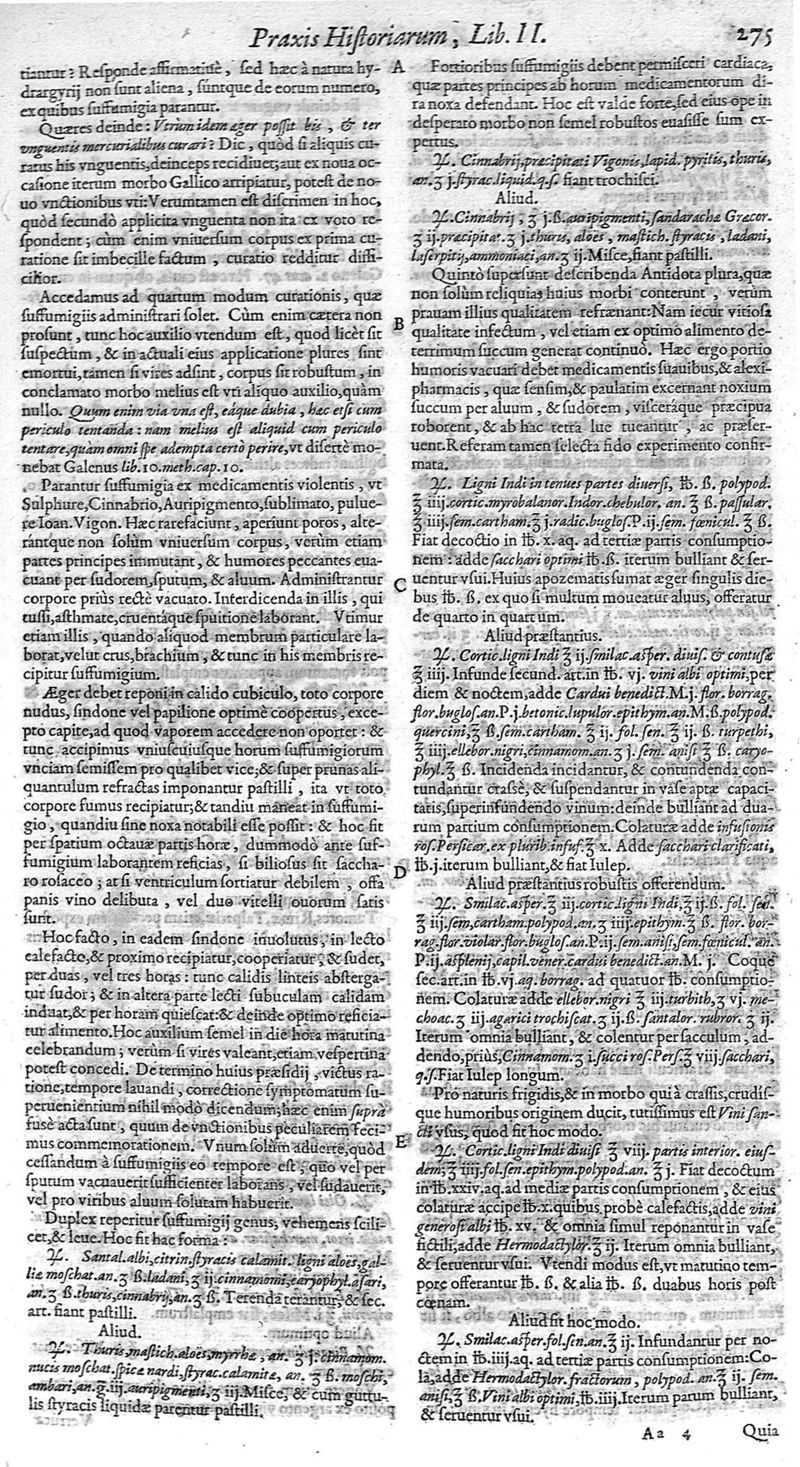 Praxis Historiarum, Lib. II. 275
tiantur? Responde affirmatiuè, sed hæc à natura hy-
drargyrij non sunt aliena, súntque de eorum numero,
ex quibus suffumigia parantur.
Quæres deinde: Vtrùm idem æger possit bis, & ter
vnguentis mercurialibus curari: Dic, quòd si aliquis cu-
ratus his vnguentis, deinceps recidiuet; aut ex noua oc-
casione iterum morbo Gallico arripiatur, potest de no-
uo vnctionibus vti: Verumtamen est discrimen in hoc,
quòd secundò applicita vnguenta non ita ex voto re-
spondent; cùm enim vniuersum corpus ex prima cu-
ratione sit imbecille factum, curatio redditur diffi-
cilior.
Accedamus ad quartum modum curationis, quæ
suffumigiis administrari solet. Cùm enim cætera non
prosunt, tunc hoc auxilio vtendum est, quod licèt sit
suspectum, & in actuali eius applicatione plures sint
emortui, tamen si vires adsint, corpus sit robustum, in
conclamato morbo melius est vti aliquo auxilio, quàm
nullo. Quum enim via vna est, eáque dubia, hæc etsi cum
periculo tentanda: nam melius est aliquid cum periculo
tentare, quàm omni spe adempta certò perire, vt disertè mo-
nebat Galenus lib. 10. meth. cap. 10.
Parantur suffumigia ex medicamentis violentis, vt
Sulphure, Cinnabrio, Auripigmento, sublimato, pulue-
re Ioan. Vigon. Hæc rarefaciunt, aperiunt poros, alte-
rántque non solùm vniuersum corpus, verùm etiam
partes principes immutant, & humores peccantes eua-
cuant per sudorem, sputum, & aluum. Administrantur
corpore priùs rectè vacuato. Interdicenda in illis, qui
tussi, asthmate, cruentáque spuitione laborant. Vtimur
etiam illis, quando aliquod membrum particulare la-
borat, velut crus, brachium, & tunc in his membris re-
cipitur suffumigium.
Æger debet reponi in calido cubiculo, toto corpore
nudus, sindone vel papilione optimè coopertus, exce-
pto capite, ad quod vaporem accedere non oportet: &
tunc accipimus vniuscuiusque horum suffumigiorum
vnciam semissem pro qualibet vice; & super prunas ali-
quantulum refractas imponantur pastilli, ita vt toto
corpore fumus recipiatur; & tandiu maneat in suffumi-
gio, quandiu sine noxa notabili esse possit: & hoc fit
per spatium octauæ partis horæ, dummodò ante suf-
fumigium laborantem reficias, si biliosus sit saccha-
ro rosaceo; at si ventriculum sortiatur debilem, offa
panis vino delibuta, vel duo vitelli ouorum satis
sunt.
Hoc facto, in eadem sindone inuolutus, in lecto
calefacto, & proximo recipiatur, cooperiatur, & sudet,
per duas, vel tres horas: tunc calidis linteis absterga-
tur sudor; & in altera parte lecti subuculam calidam
induat, & per horam quiescat: & deinde optimo reficia-
tur alimento. Hoc auxilium semel in die hora matutina
celebrandum; verùm si vires valeant, etiam vespertina
potest concedi. De termino huius præsidij, victus ra-
tione, tempore lauandi, correctione symptomatum su-
peruenientium nihil modò dicendum; hæc enim supra
fusè acta sunt, quum de vnctionibus peculiarem feci-
mus commemorationem. Vnum solùm aduerte, quòd
cessandum à suffumigiis eo tempore est, quo vel per
sputum vacuauerit sufficienter laborans, vel sudauerit,
vel pro viribus aluum solutam habuerit.
Duplex reperitur suffumigij genus, vehemens scili-
cet, & leue. Hoc fit hac forma:
℞. Santal. albi, citrin. styracis calamit. ligni aloës, gal-
liæ moschat. an. ʒ ß. ladani, ʒ ij. cinnamomi, caryophyl. asari,
an. ʒ ß. thuris, cinnabrij, an. ʒ ß. Terenda terantur, & sec.
art. fiant pastilli.
Aliud.
℞. Thuris, mastich. aloës, myrrhæ, an. ʒ j. cinnamom.
nucis moschat. spicæ nardi, styrac. calamitæ, an. ʒ ß. moschi,
ambari, an. g. iij. auripigmenti, ʒ iij. Misce, & cum guttu-
lis styracis liquidæ parentur pastilli.
A
B
C
D
E
Fortioribus suffumigiis debent permisceri cardiaca,
quæ partes principes ab horum medicamentorum di-
ra noxa defendant. Hoc est valde forte, sed eius ope in
desperato morbo non semel robustos euasisse sum ex-
pertus.
℞. Cinnabrij, præcipitati Vigonis, lapid. pyritis, thuris,
an. ʒ j. styrac. liquid. q. s. fiant trochisci.
Aliud.
℞. Cinnabrij, ʒ j. ß. auripigmenti, sandarachæ Græcor.
ʒ ij. præcipitat. ʒ j. thuris, aloës, mastich. styracis, ladani,
laserpitij, ammoniaci, an. ʒ ij. Misce, fiant pastilli.
Quintò supersunt describenda Antidota plura, quæ
non solùm reliquias huius morbi conterunt, verùm
prauam illius qualitatem refrænant: Nam iecur vitiosa
qualitate infectum, vel etiam ex optimo alimento de-
terrimum succum generat continuò. Hæc ergo portio
humoris vacuari debet medicamentis suauibus, & alexi-
pharmacis, quæ sensim, & paulatim excernant noxium
succum per aluum, & sudorem, visceráque præcipua
roborent, & ab hac tetra lue tueantur, ac præser-
uent. Referam tamen selecta fido experimento confir-
mata.
℞. Ligni Indi in tenues partes diuersi, ℔. ß. polypod.
℥ iiij. cortic. myrobalanor. Indor. chebulor. an. ℥ ß. passular.
℥ iiij. sem. cartham. ʒ j. radic. buglos. P. ij. sem. fœnicul. ℥ ß.
Fiat decoctio in ℔. x. aq. ad tertiæ partis consumptio-
nem: adde sacchari optimi ℔. ß. iterum bulliant & ser-
uentur vsui. Huius apozematis sumat æger singulis die-
bus ℔. ß. ex quo si multum moueatur aluus, offeratur
de quarto in quartum.
Aliud præstantius.
℞. Cortic. ligni Indi ℥ ij. smilac. asper. diuis. & contusæ
℥ iiij. Infunde secund. art. in ℔. vj. vini albi optimi, per
diem & noctem, adde Cardui benedict. M. j. flor. borrag.
flor. buglos. an. P. j. betonic. lupulor. epithym. an. M. ß. polypod.
quercini, ℥ ß. sem. cartham. ℥ ij. fol. sen. ℥ ij. ß. turpethi,
℥ iiij. ellebor. nigri, cinnamom. an. ʒ j. sem. anisi ℥ ß. caryo-
phyl. ℥ ß. Incidenda incidantur, & contundenda con-
tundantur crassè, & suspendantur in vase aptæ capaci-
tatis, superinfundendo vinum: deinde bulliant ad dua-
rum partium consumptionem. Colaturæ adde infusionis
ros. Persicar. ex plurib. infus. ℥ x. Adde sacchari clarificati,
℔. j. iterum bulliant, & fiat Iulep.
Aliud præstantius robustis offerendum.
℞. Smilac. asper. ℥ iij. cortic. ligni Indi, ℥ ij. ß. fol. sen.
℥ iij. sem. cartham. polypod. an. ℥ iiij. epithym. ℥ ß. flor. bor-
rag. flor. violar. flor. buglos. an. P. iij. sem. anisi, sem. fœnicul. an.
P. ij. asplenij, capil. vener. cardui benedict. an. M. j. Coque
sec. art. in ℔. vj. aq. borrag. ad quatuor ℔. consumptio-
nem. Colaturæ adde ellebor. nigri ʒ iij. turbith, ʒ vj. me-
choac. ʒ iij. agarici trochiscat. ʒ ij. ß. santalor. rubror. ʒ ij.
Iterum omnia bulliant, & colentur per sacculum, ad-
dendo, priùs, Cinnamom. ʒ i. succi ros. Pers. ℥ viij. sacchari,
q. s. Fiat Iulep longum.
Pro naturis frigidis, & in morbo qui à crassis, crudís-
que humoribus originem ducit, tutissimus est Vini san-
cti vsus, quod fit hoc modo.
℞. Cortic. ligni Indi diuisi ℥ viij. partis interior. eius-
dem, ℥ iiij. fol. sen. epithym. polypod. an. ℥ j. Fiat decoctum
in ℔. xxiv. aq. ad mediæ partis consumptionem, & eius
colaturæ accipe ℔. x. quibus probè calefactis, adde vini
generosi albi ℔. xv. & omnia simul reponantur in vase
fictili; adde Hermodactylor. ℥ ij. Iterum omnia bulliant,
& seruentur vsui. Vtendi modus est, vt matutino tem-
pore offerantur ℔. ß. & alia ℔. ß. duabus horis post
cœnam.
Aliud fit hoc modo.
℞. Smilac. asper. fol. sen. an. ℥ ij. Infundantur per no-
ctem in ℔. iiij. aq. ad tertiæ partis consumptionem: Co-
la, adde Hermodactylor. fractorum, polypod. an. ℥ ij. sem.
anisi, ℥ ß. Vini albi optimi, ℔. iiij. Iterum parum bulliant,
& seruentur vsui.
Aa 4 Quia